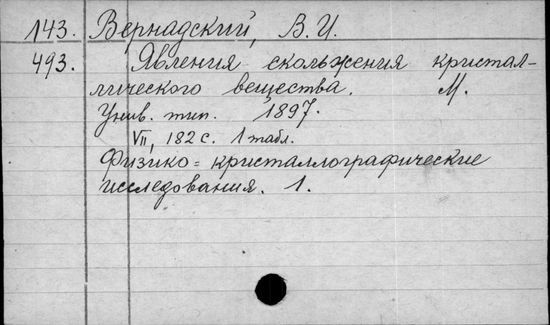 143. Вернадский, В. И.
493. Явления скольжения кристал-
лического вещества. М.
Унив. тип. 1897.
VII, 182 с. 1 табл.
Физико-кристаллографические
исследования. 1.